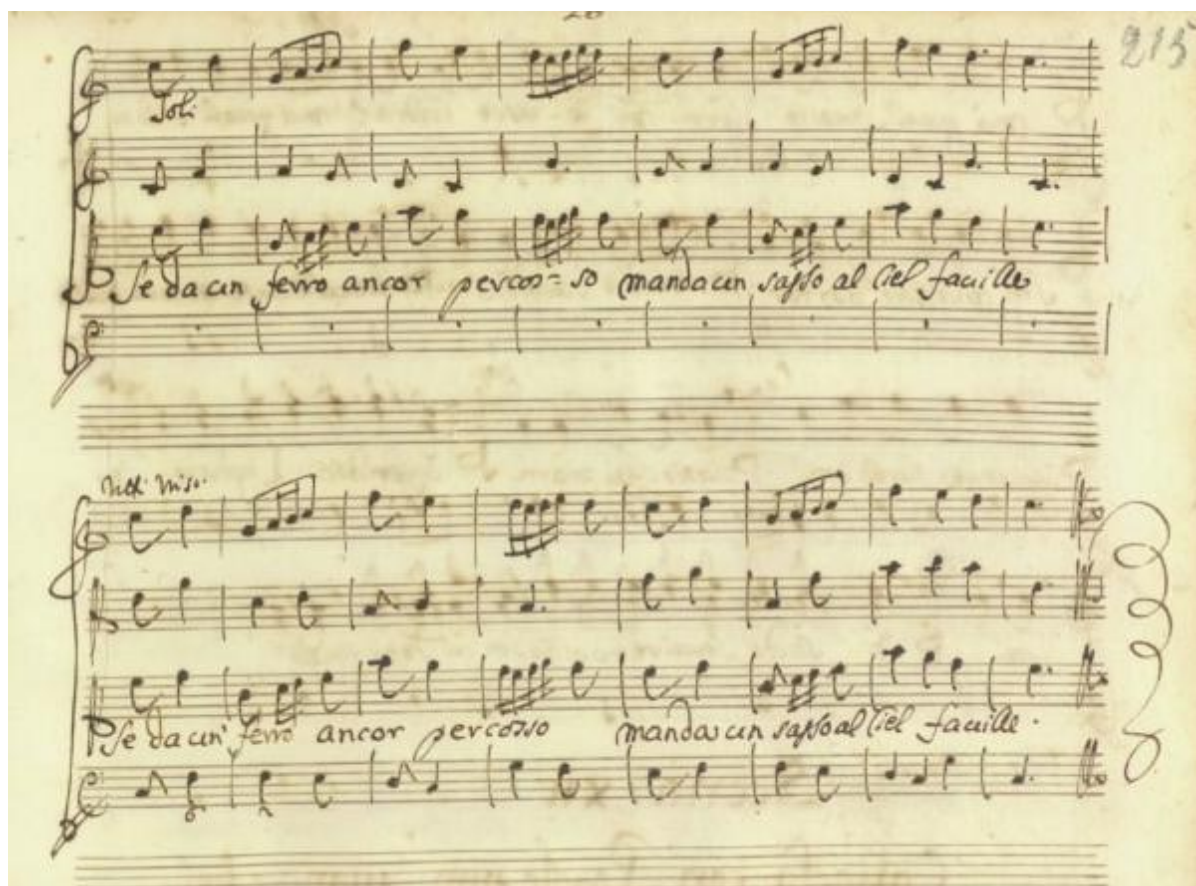 215
Soli
Se da un ferro ancor percos=so manda un sasso al Ciel fauille
Se da un' ferro ancor percosso manda un sasso al Ciel fauille.